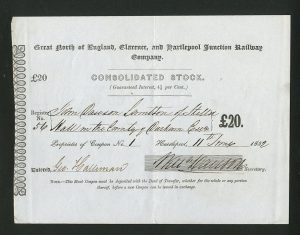 Great North of England, Clarence, and Hartlepool Junction Railway
Company.
£20
CONSOLIDATED STOCK.
(Guaranteed Interest, 4½ per cent.)
Register
No.
56
John Dawson Lambton of
Hall in the County of Durham Esqr.
£20.
Proprietor of Coupon No. 1
Hartlepool, 11th June 18
Entered, Geo.
Secretary.
NOTE.—This Stock Coupon must be deposited with the Deed of Transfer, whether for the whole or any portion
thereof, before a new Coupon can be issued in exchange.